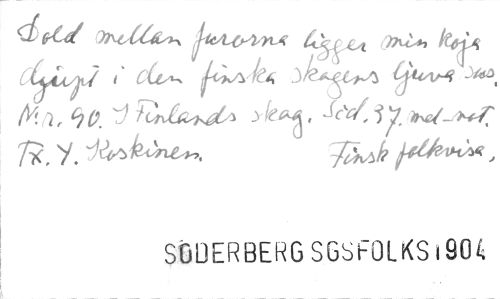 Dold mellan furorna ligger min koja
djupt i den finska skogens ljuva sus.
N:r. 90. I Finlands skog. Sid. 37. md-not.
Tx. Y. Koskinen. Finsk folkvisa.
SÖDERBERG SGSFOLKS1904